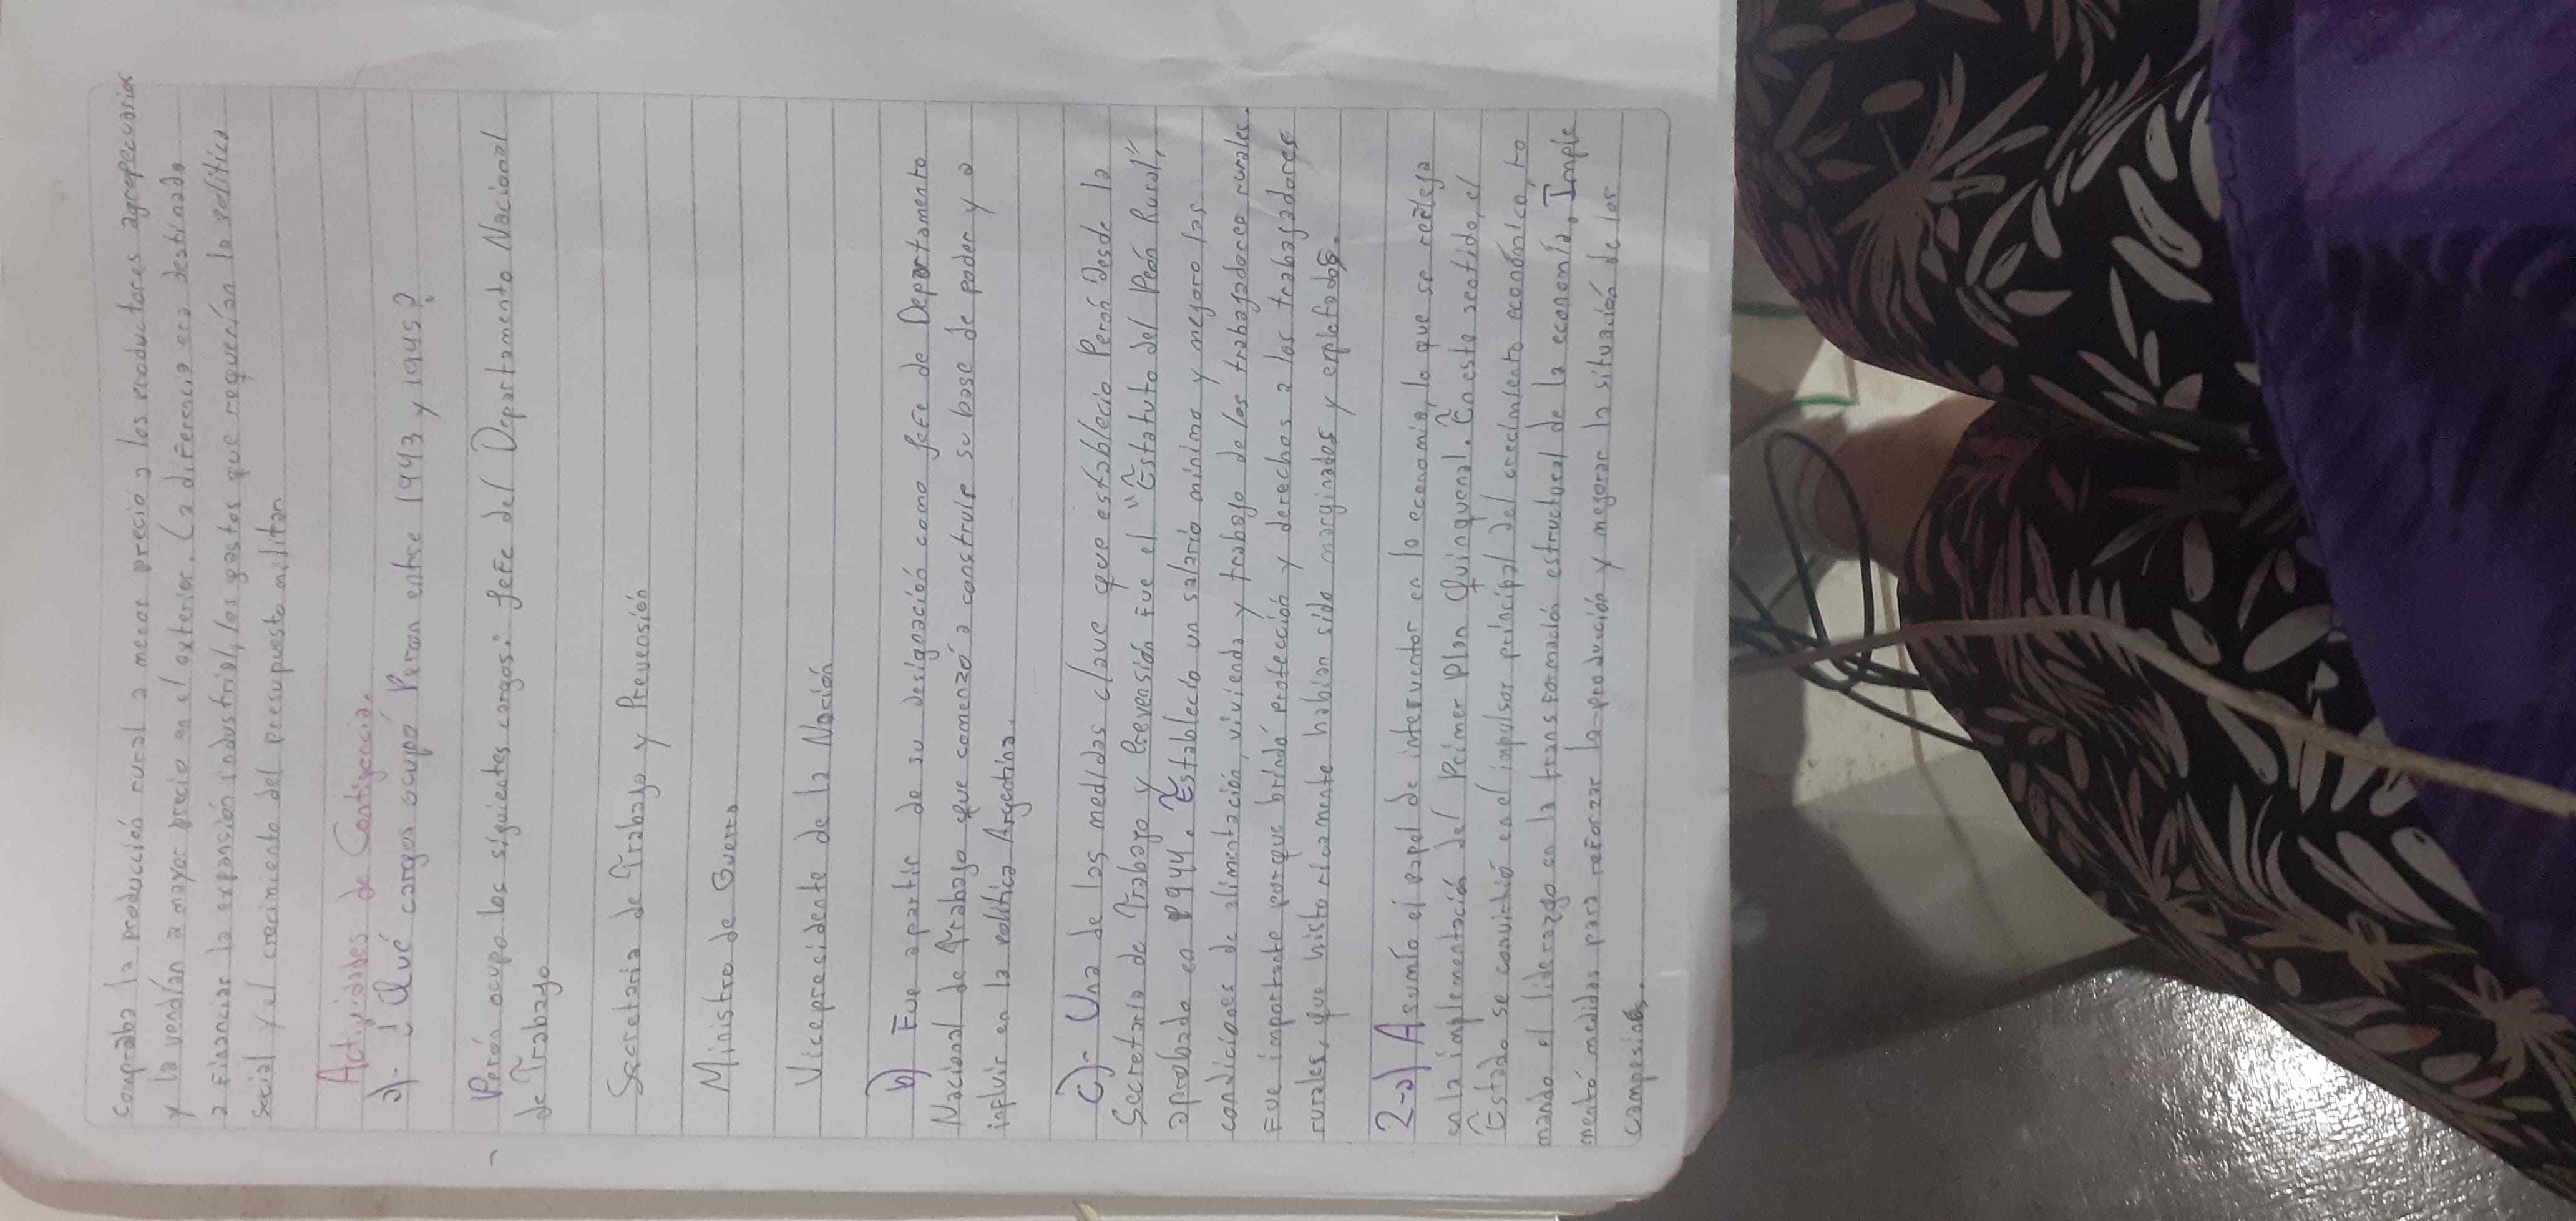 compraba la producción rural a menor precio a los productores agropecuarior
y la vendían a mayor precio en el exterior. La diferencia era destinada
a Financiar la expansión industrial, los gastos que requerían la política
social y el crecimiento del presupuesto militar
Actividades de Contigencia.
a)- ¿Qué cargos ocupó Peron entre 1943 y 1945?
Perón ocupo los siguientes cargos: jefe del Departamento Nacional
de Trabajo
Secretaria de Trabajo y Prevensión
Ministro de Guerra
Viceprecidente de la Nación
b) Fue apartir de su designación como jefe de Departamento
Nacional de Trabajo que comenzó a construir su base de poder y a
influir en la política Argentina.
c)- Una de las medidas clave que establecio Perón desde la
Secretaría de Trabajo y Prevensión Fue el "Estatuto del Peón Rural",
aprobado en 1944. Establecío un salario mínimo y mejoro las
condiciones de alimentación, vivienda y trabajo de los trabajadores rurales.
Fue importante porque brindó protección y derechos a los trabajadores
rurales, que históricamente habían sido marginados y explotados.
2-a) Asumío el papel de interventor en la economía, lo que se refleja
en la implementación del Primer Plan Quinquenal. En este sentido, el
Estado se convirtió en el impulsor principal del crecimiento económico, to
mando el liderazgo en la transformación estructural de la economía. Imple
mentó medidas para reforzar la producción y mejorar la situación de los
campesinos.